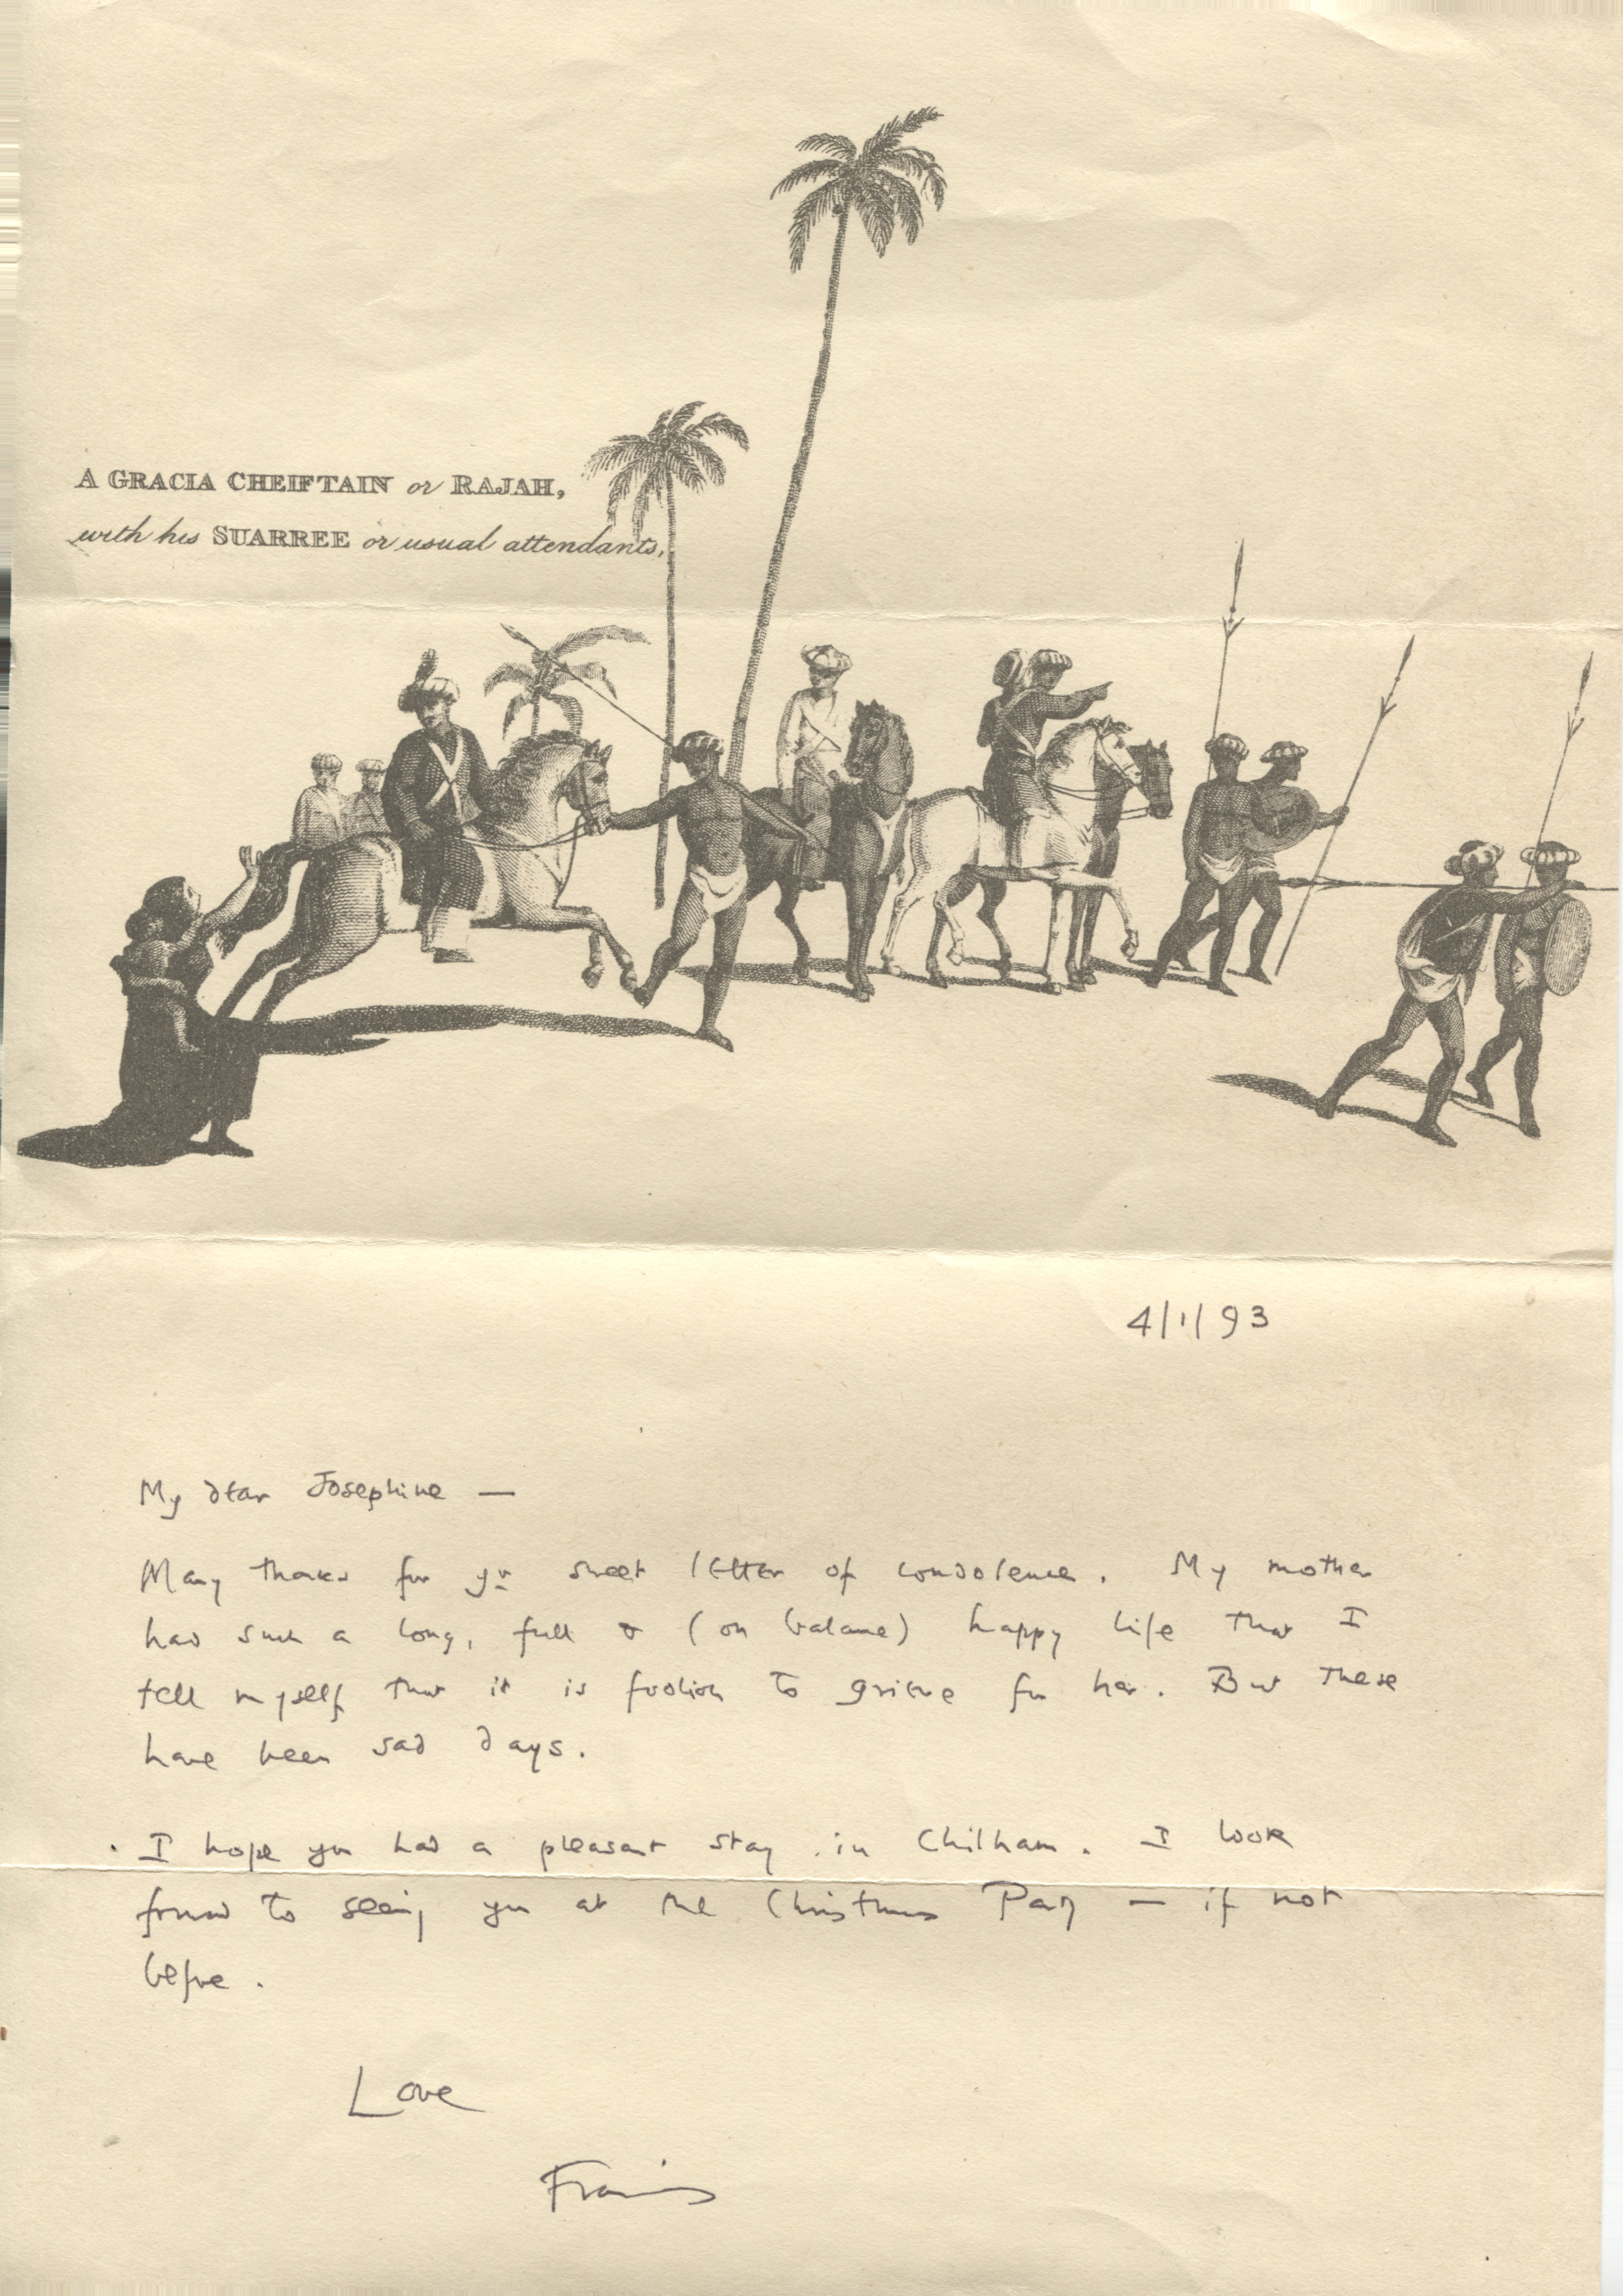 A GRACIA CHEIFTAIN or RAJAH,
with his SUARREE or usual attendants.
4/1/93
My dear Josephine —
Many thanks for yr sweet letter of condolence. My mother
had such a long, full & (on balance) happy life that I
tell myself that it is foolish to grieve for her. But these
have been sad days.
I hope you had a pleasant stay in Chilham. I look
forward to seeing you at the Christmas Party — if not
before.
Love
Francis